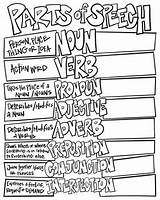 PARTS of SPEECH
PERSON, PLACE
THING OR IDEA
NOUN
ACTION WORD
VERB
TAKES THE PLACE OF A
NOUN / NOUNS
PRONOUN
DESCRIBES/MODIFIES
A NOUN
ADJECTIVE
DESCRIBES/MODIFIES
A VERB
ADVERB
PREPOSITION
CONJUNCTION
INTERJECTION